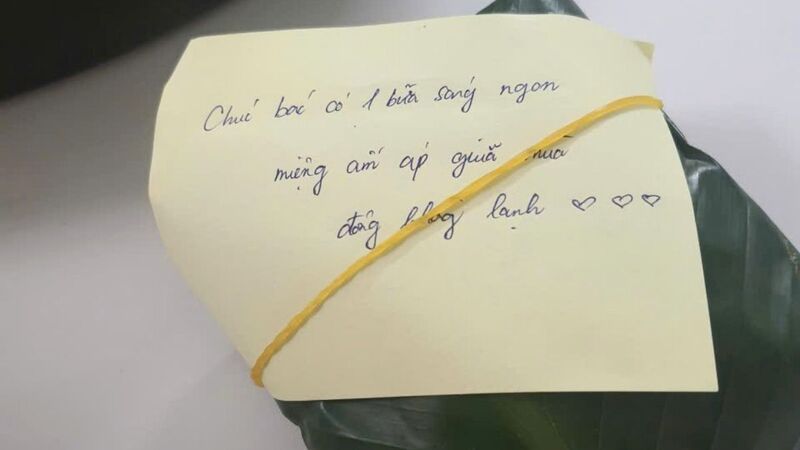 Chúc bác có 1 bữa sáng ngon
miệng ấm áp giữa mùa
đông lạnh ♡ ♡ ♡